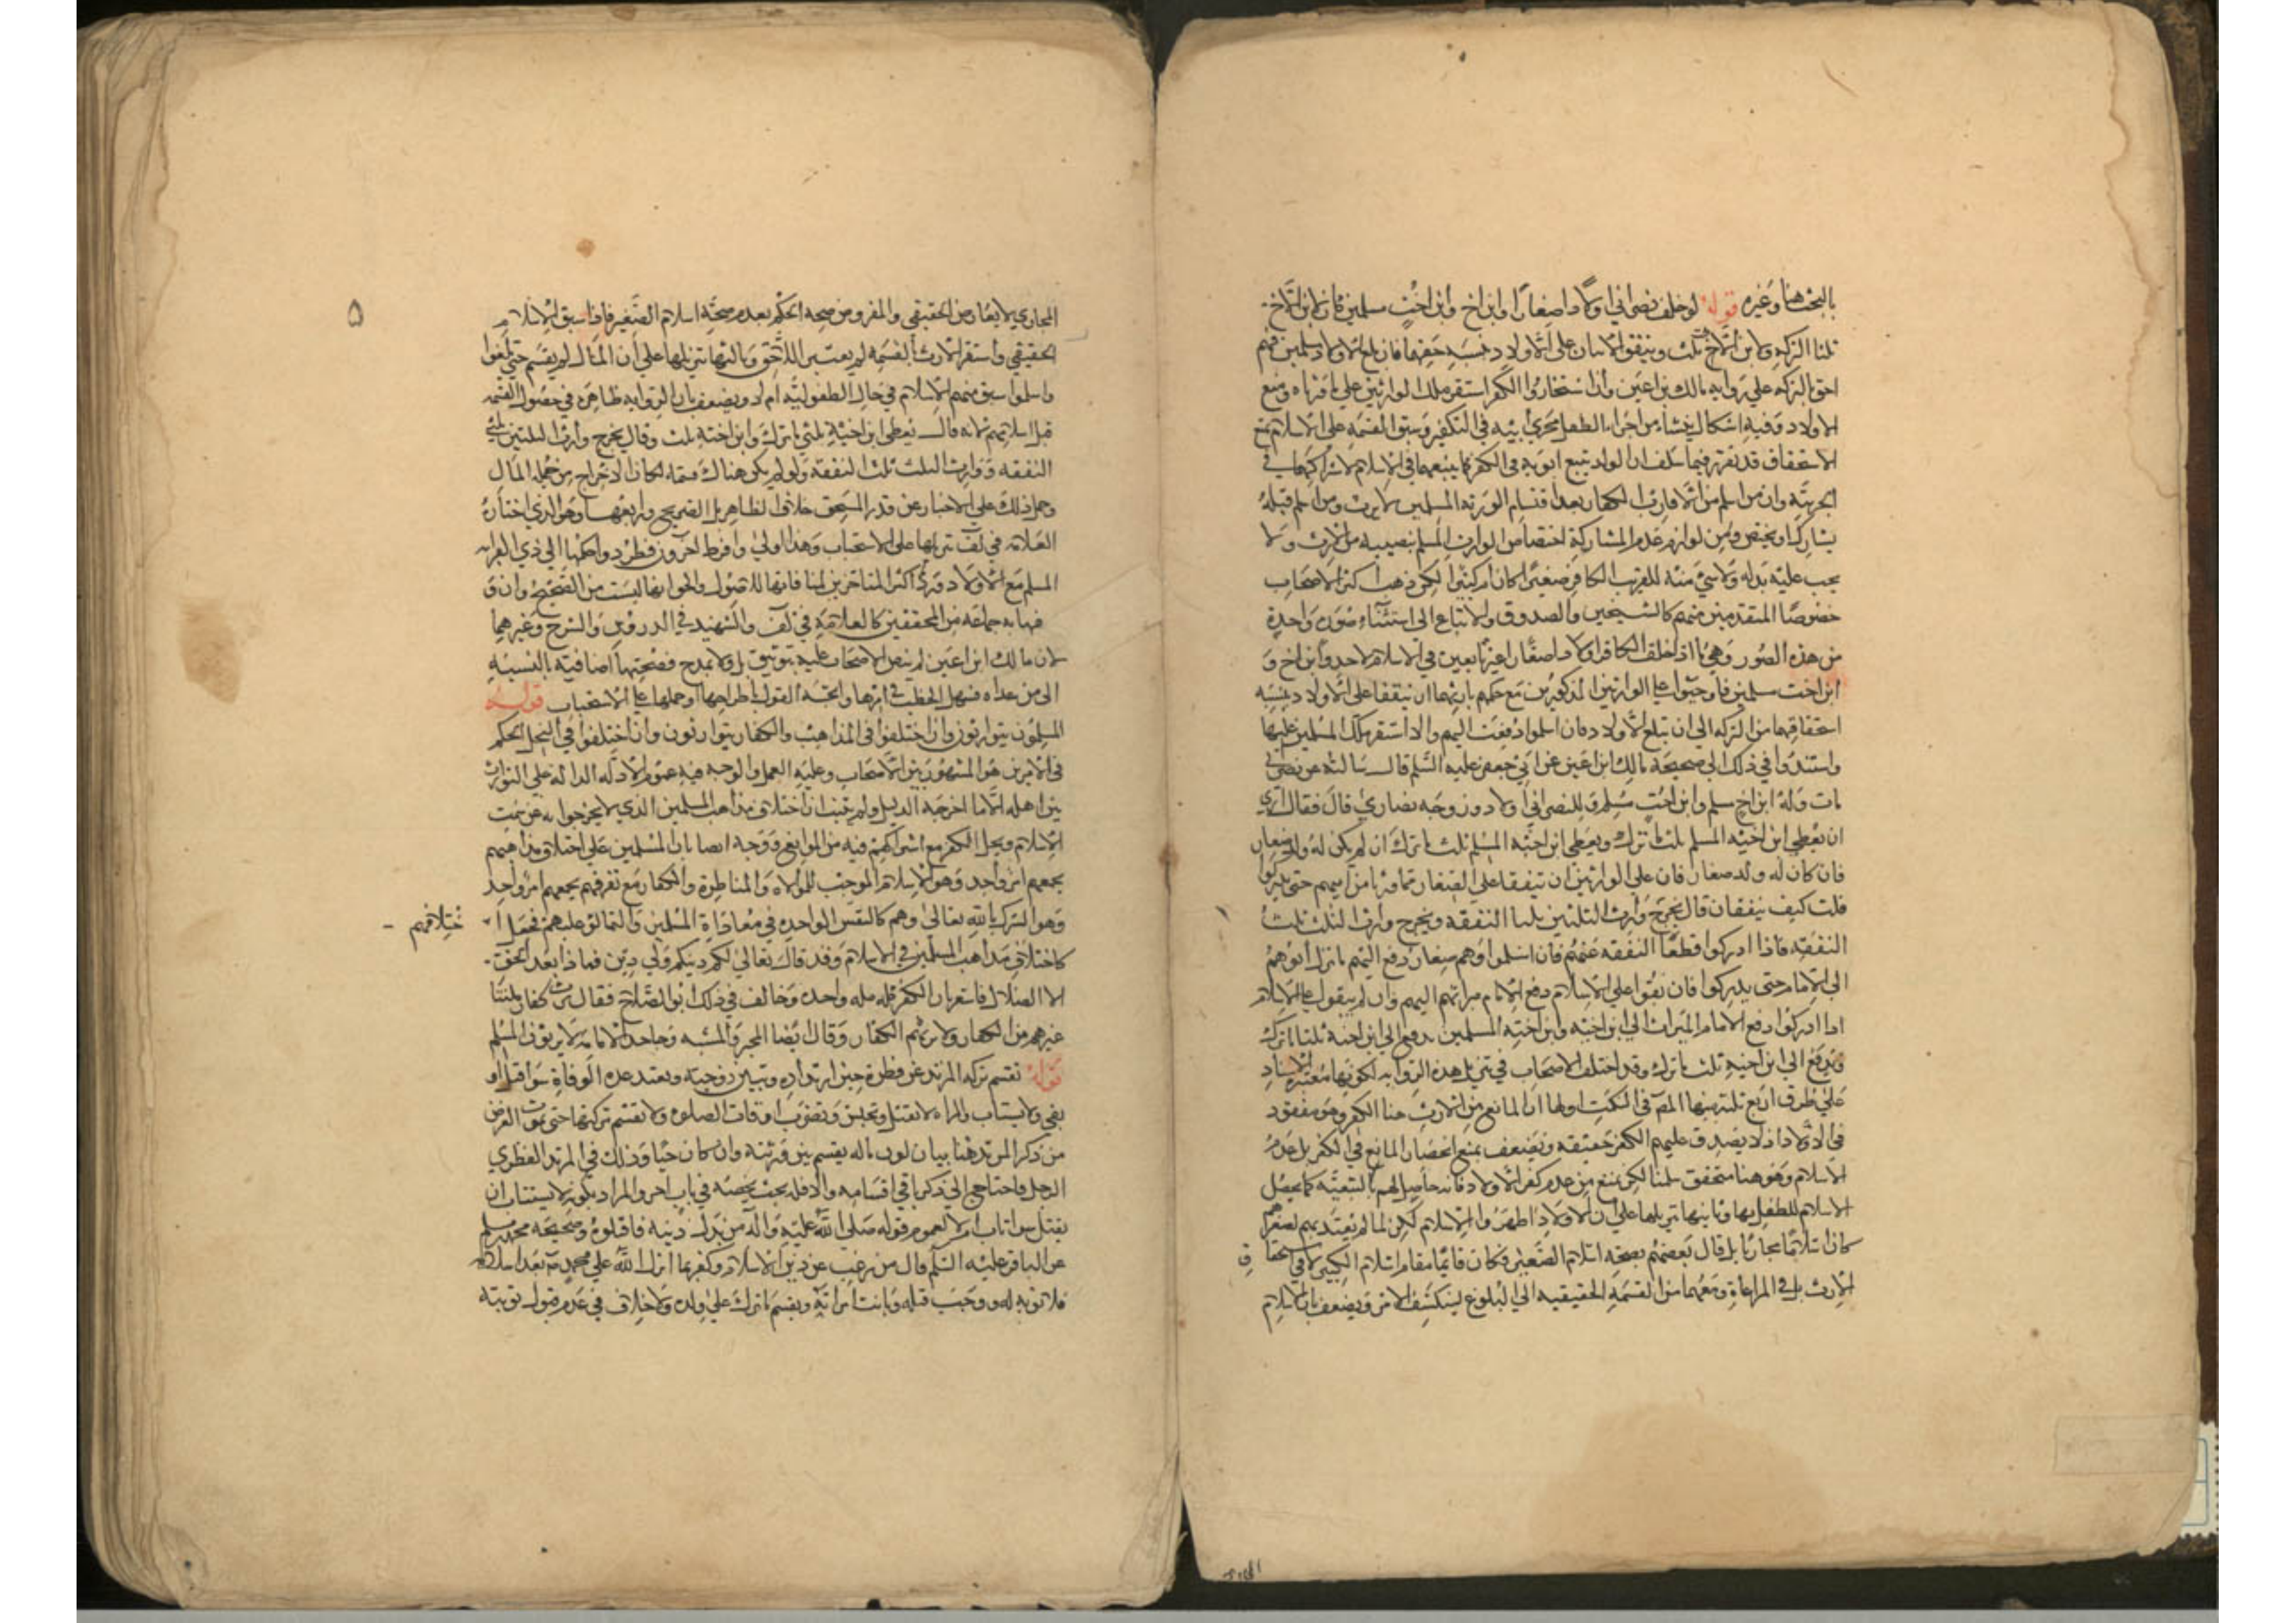 بالبحث هنا وغيره قوله لو خلف نصراني اولادا صغارا وابن اخ وابن اخت مسلمين كان لابن الاخ
ثلثا التركة ولابن الاخت ثلث وينفق الاثنان على الاولاد بنسبة حقهما فان بلغ الاولاد مسلمين فهم
احق بالتركة على رواية مالك بن اعين وان اختاروا الكفر استقر ملك الوارثين على ما ورثاه ومنع
الاولاد وفيه اشكال ينشاء من اجراء الطفل مجرى ابيه في التكفير وسبق القسمة على الاسلام يمنع
الاستحقاق قد تقرر فيما سلف ان الولد يتبع ابويه في الكفر كما يتبعهما في الاسلام لاشتراكهما في
الجزئية وان من اسلم من الاقارب الكفار بعد اقتسام الورثة المسلمين لا يرث ومن اسلم قبله
يشارك او يختص ومن لوازم عدم المشاركة اختصاص الوارث المسلم بنصيبه من الارث ولا
يجب عليه بذله ولا شيء منه للقريب الكافر صغيرا كان ام كبيرا لكن ذهب اكثر الاصحاب
خصوصا المتقدمين منهم كالشيخين والصدوق والاتباع الى استثناء صورة واحدة
من هذه الصور وهي ما اذا خلف الكافر اولادا صغارا غير تابعين في الاسلام لاحد وابن اخ و
ابن اخت مسلمين فاوجبوا على الوارثين المذكورين مع حكمهم بارثهما ان ينفقا على الاولاد بنسبة
استحقاقهما من التركة الى ان تبلغ الاولاد فان اسلموا دفعت اليهم والا استقر ملك المسلمين عليها
واستندوا في ذلك الى صحيحة مالك ابن اعين عن ابي جعفر عليه السلم قال سالته عن نصراني
مات وله ابن اخ مسلم وابن اخت مسلم وللنصراني اولاد وزوجة نصارى قال فقال ارى
ان يعطى ابن اخيه المسلم ثلثي ما ترك ويعطى ابن اخته المسلم ثلث ما ترك ان لم يكن له ولد صغار
فان كان له ولد صغار فان على الوارثين ان ينفقا على الصغار مما ورثا من ابيهم حتى يدركوا
قلت كيف ينفقان قال يخرج وارث الثلثين ثلثا النفقة ويخرج وارث الثلث ثلث
النفقة فاذا ادركوا قطعا النفقة عنهم فان اسلموا وهم صغار دفع اليهم ما ترك ابوهم
الى الامام حتى يدركوا فان بقوا على الاسلام دفع الامام ميراثهم اليهم وان لم يبقوا على الاسلام
اذا ادركوا دفع الامام الميراث الى ابن اخيه وابن اخته المسلمين يدفع الى ابن اخيه ثلثا ما ترك
ويدفع الى ابن اخته ثلث ما ترك وقد اختلف الاصحاب في تنزيل هذه الرواية لكونها معتبرة الاسناد
على طرق اربع ثلثة منها المص في النكت اولها ان المانع من الارث هنا الكفر وهو مفقود
في الاولاد اذ لا يصدق عليهم الكفر حقيقة ويضعف بمنع انحصار المانع في الكفر بل عدم
الاسلام وهو هنا متحقق سلمنا لكن نمنع من عدم كفر الاولاد فانه حاصل لهم بالتبعية كما يحصل
الاسلام للطفل بها وثانيها تنزيلها على ان الاولاد اظهروا الاسلام لكن لما لم يعتد بهم لصغرهم
كان اسلاما مجازيا بل قال بعضهم بصحة اسلام الصغير فكان قائما مقام اسلام الكبير لا في استحقاق
الارث بل في المراعاة ومنعهما من القسمة الحقيقية الى البلوغ لينكشف الامر ويضعف بان الاسلام
٥
المجازي لا يعارض الحقيقي والمفروض من صحة الحكم بعدم صحة اسلام الصغير فاذا سبق الاسلام
الحقيقي واستقر الارث بالقسمة لم يعتبر اللاحق وثالثها تنزيلها على ان المال لم يقسم حتى بلغوا
واسلموا سبق منهم الاسلام في حال الطفولية ام لا ويضعف بان الرواية ظاهرة في حصول القسمة
قبل اسلامهم لانه قال يعطى ابن اخيه ثلثي ما ترك وابن اخته ثلث وقال يخرج وارث الثلثين ثلثي
النفقة ووارث الثلث ثلث النفقة ولو لم يكن هناك قسمة لكان الاخراج من جملة المال
وحمل ذلك على الاخبار عن قدر المستحق خلاف الظاهر بل الصريح ورابعها وهو الذي اختاره
العلامة في لف تنزيلها على الاستحباب وهذا اولى وافرط اخرون فطردوا حكمها الى ذي القرابة
المسلم مع الاولاد ورد اكثر المتاخرين لمنافاتها للاصول والحق انها ليست من الصحيح وان و
صفها به جماعة من المحققين كالعلامة في لف والشهيد في الدروس والشرح وغيرهما
لان مالك ابن اعين لم ينص الاصحاب عليه بتوثيق بل ولا بمدح فصحتها اضافية بالنسبة
الى من عداه فسهل الخطب في امرها واتجه القول باطراحها او حملها على الاستحباب قوله
المسلمون يتوارثون وان اختلفوا في المذاهب والكفار يتوارثون وان اختلفوا في النحل الحكم
في الامرين هو المشهور بين الاصحاب وعليه العمل والوجه فيه عموم الادلة الدالة على التوارث
بين اهله الا ما اخرجه الدليل ولم يثبت ان اختلاف مذاهب المسلمين الذي لا يخرجوا به عن سمت
الاسلام ونحل الكفر مع اشتراكهم فيه من الموانع ووجه ايضا بان المسلمين على اختلاف مذاهبهم
يجمعهم امر واحد وهو الاسلام الموجب للموالاة والمناظرة والكفار مع تفرقهم يجمعهم امر واحد
وهو الشرك بالله تعالى وهم كالنفس الواحدة في معاداة المسلمين والتمالؤ عليهم فجعل اختلافهم
كاختلاف مذاهب المسلمين في الاسلام وقد قال تعالى لكم دينكم ولي دين فماذا بعد الحق
الا الضلال فاشعر بان الكفر كله ملة واحدة وخالف في ذلك ابو الصلاح فقال يرث كفار ملتنا
غيرهم من الكفار ولا يرثهم الكفار وقال ايضا المجبر والمشبه وجاحد الامامة لا يرثون المسلم
قوله تقسم تركة المرتد عن فطرة حين ارتداده وتبين زوجته وتعتد عدة الوفاة سوا قتل او
بقي ولا يستتاب والمراة لا تقتل وتحبس وتضرب اوقات الصلوة ولا تقسم تركتها حتى تموت الغرض
من ذكر المرتد هنا بيان كون ماله يقسم بين ورثته وان كان حيا وذلك في المرتد الفطري
الرجل فاحتاج الى ذكر باقي اقسامه والا فله بحث يخصه في باب اخر والمراد بكونه لا يستتاب ان
يقتل سوا تاب ام لا لعموم قوله صلى الله عليه واله من بدل دينه فاقتلوه وصحيحة محمد بن مسلم
عن الباقر عليه السلم قال من رغب عن دين الاسلام وكفر بما انزل الله على محمد ص بعد اسلامه
فلا توبة له ووجب قتله وبانت امراته ويقسم ما ترك على ولده ولا خلاف في عدم قبول توبته